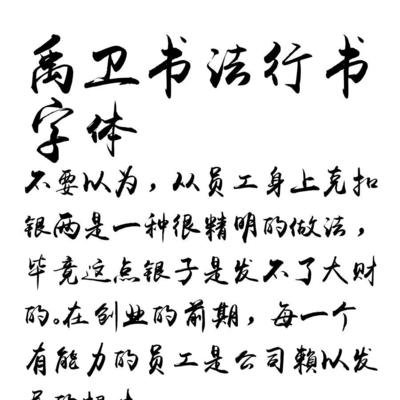 禹卫书法行书
字体
不要以为，从员工身上克扣
银两是一种很精明的做法，
毕竟这点银子是发不了大财
的。在创业的前期，每一个
有能力的员工是公司赖以发